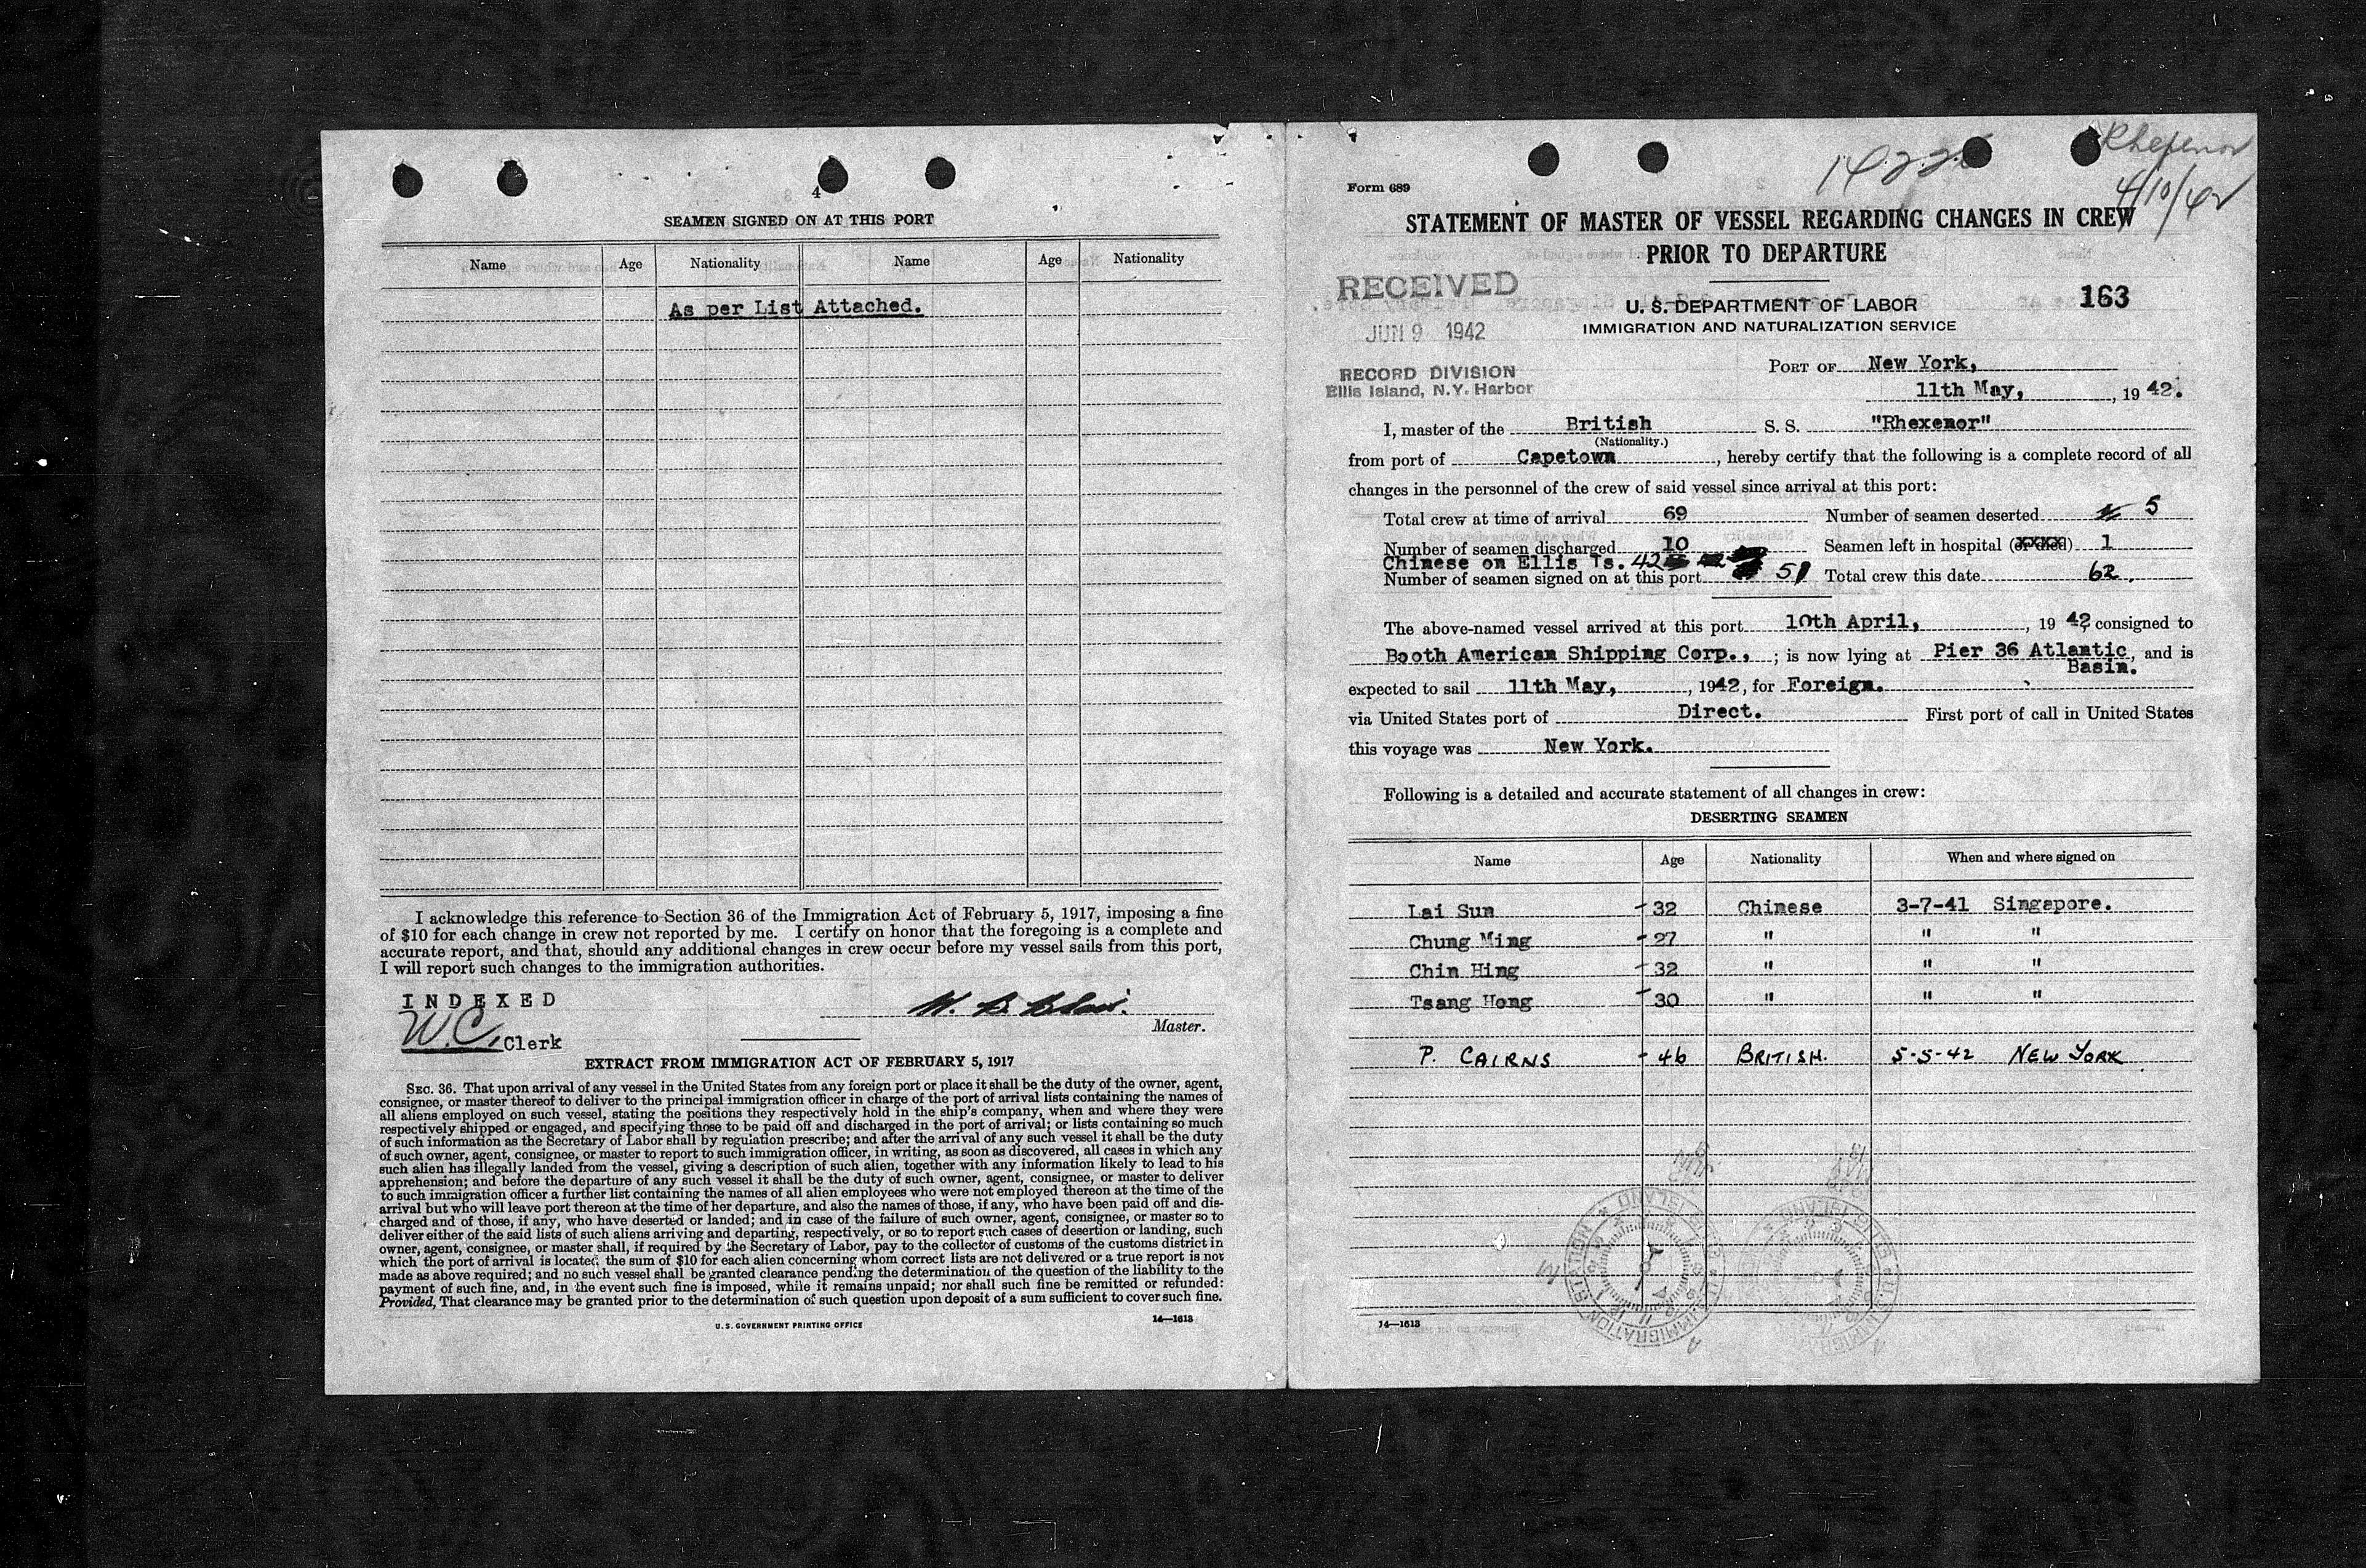 4
SEAMEN SIGNED ON AT THIS PORT
Name Age Nationality Name Age Nationality
As per List Attached.
I acknowledge this reference to Section 36 of the Immigration Act of February 5, 1917, imposing a fine
of $10 for each change in crew not reported by me. I certify on honor that the foregoing is a complete and
accurate report, and that, should any additional changes in crew occur before my vessel sails from this port,
I will report such changes to the immigration authorities.
INDEXED
W.C. Clerk
W. B. Blair.
Master.
EXTRACT FROM IMMIGRATION ACT OF FEBRUARY 5, 1917
SEC. 36. That upon arrival of any vessel in the United States from any foreign port or place it shall be the duty of the owner, agent,
consignee, or master thereof to deliver to the principal immigration officer in charge of the port of arrival lists containing the names of
all aliens employed on such vessel, stating the positions they respectively hold in the ship's company, when and where they were
respectively shipped or engaged, and specifying those to be paid off and discharged in the port of arrival; or lists containing so much
of such information as the Secretary of Labor shall by regulation prescribe; and after the arrival of any such vessel it shall be the duty
of such owner, agent, consignee, or master to report to such immigration officer, in writing, as soon as discovered, all cases in which any
such alien has illegally landed from the vessel, giving a description of such alien, together with any information likely to lead to his
apprehension; and before the departure of any such vessel it shall be the duty of such owner, agent, consignee, or master to deliver
to such immigration officer a further list containing the names of all alien employees who were not employed thereon at the time of the
arrival but who will leave port thereon at the time of her departure, and also the names of those, if any, who have been paid off and dis-
charged and of those, if any, who have deserted or landed; and in case of the failure of such owner, agent, consignee, or master so to
deliver either of the said lists of such aliens arriving and departing, respectively, or so to report such cases of desertion or landing, such
owner, agent, consignee, or master shall, if required by the Secretary of Labor, pay to the collector of customs of the customs district in
which the port of arrival is located the sum of $10 for each alien concerning whom correct lists are not delivered or a true report is not
made as above required; and no such vessel shall be granted clearance pending the determination of the question of the liability to the
payment of such fine, and, in the event such fine is imposed, while it remains unpaid; nor shall such fine be remitted or refunded:
Provided, That clearance may be granted prior to the determination of such question upon deposit of a sum sufficient to cover such fine.
U. S. GOVERNMENT PRINTING OFFICE 14—1613
Rhexenor
4/10/42
Form 689
STATEMENT OF MASTER OF VESSEL REGARDING CHANGES IN CREW
PRIOR TO DEPARTURE
RECEIVED
JUN 9 1942
RECORD DIVISION
Ellis Island, N.Y. Harbor
U. S. DEPARTMENT OF LABOR
IMMIGRATION AND NATURALIZATION SERVICE
163
PORT OF New York,
11th May, , 19 42.
I, master of the British S. S. "Rhexenor"
(Nationality.)
from port of Capetown , hereby certify that the following is a complete record of all
changes in the personnel of the crew of said vessel since arrival at this port:
Total crew at time of arrival 69 Number of seamen deserted 5
Number of seamen discharged 10 Seamen left in hospital (or died) 1
Chinese on Ellis Is. 42
Number of seamen signed on at this port 51 Total crew this date 62.
The above-named vessel arrived at this port 10th April, , 19 42 consigned to
Booth American Shipping Corp., ; is now lying at Pier 36 Atlantic , and is
Basin.
expected to sail 11th May, , 1942, for Foreign.
via United States port of Direct. First port of call in United States
this voyage was New York.
Following is a detailed and accurate statement of all changes in crew:
DESERTING SEAMEN
Name Age Nationality When and where signed on
Lai Sun 32 Chinese 3-7-41 Singapore.
Chung Ming 27 " " "
Chin Hing 32 " " "
Tsang Hong 30 " " "
P. CAIRNS 46 BRITISH. 5-5-42 NEW YORK
14—1613